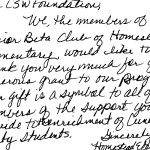 LSW Foundation,
We, the members of
ior Beta Club of Homes
mentary would like to
nk you very much for y
erous grant to our prog
r gift is a symbol to all o
mbers of the support you
vide to enrichment of Cen
ty Students.
Sincerely
Homestead E